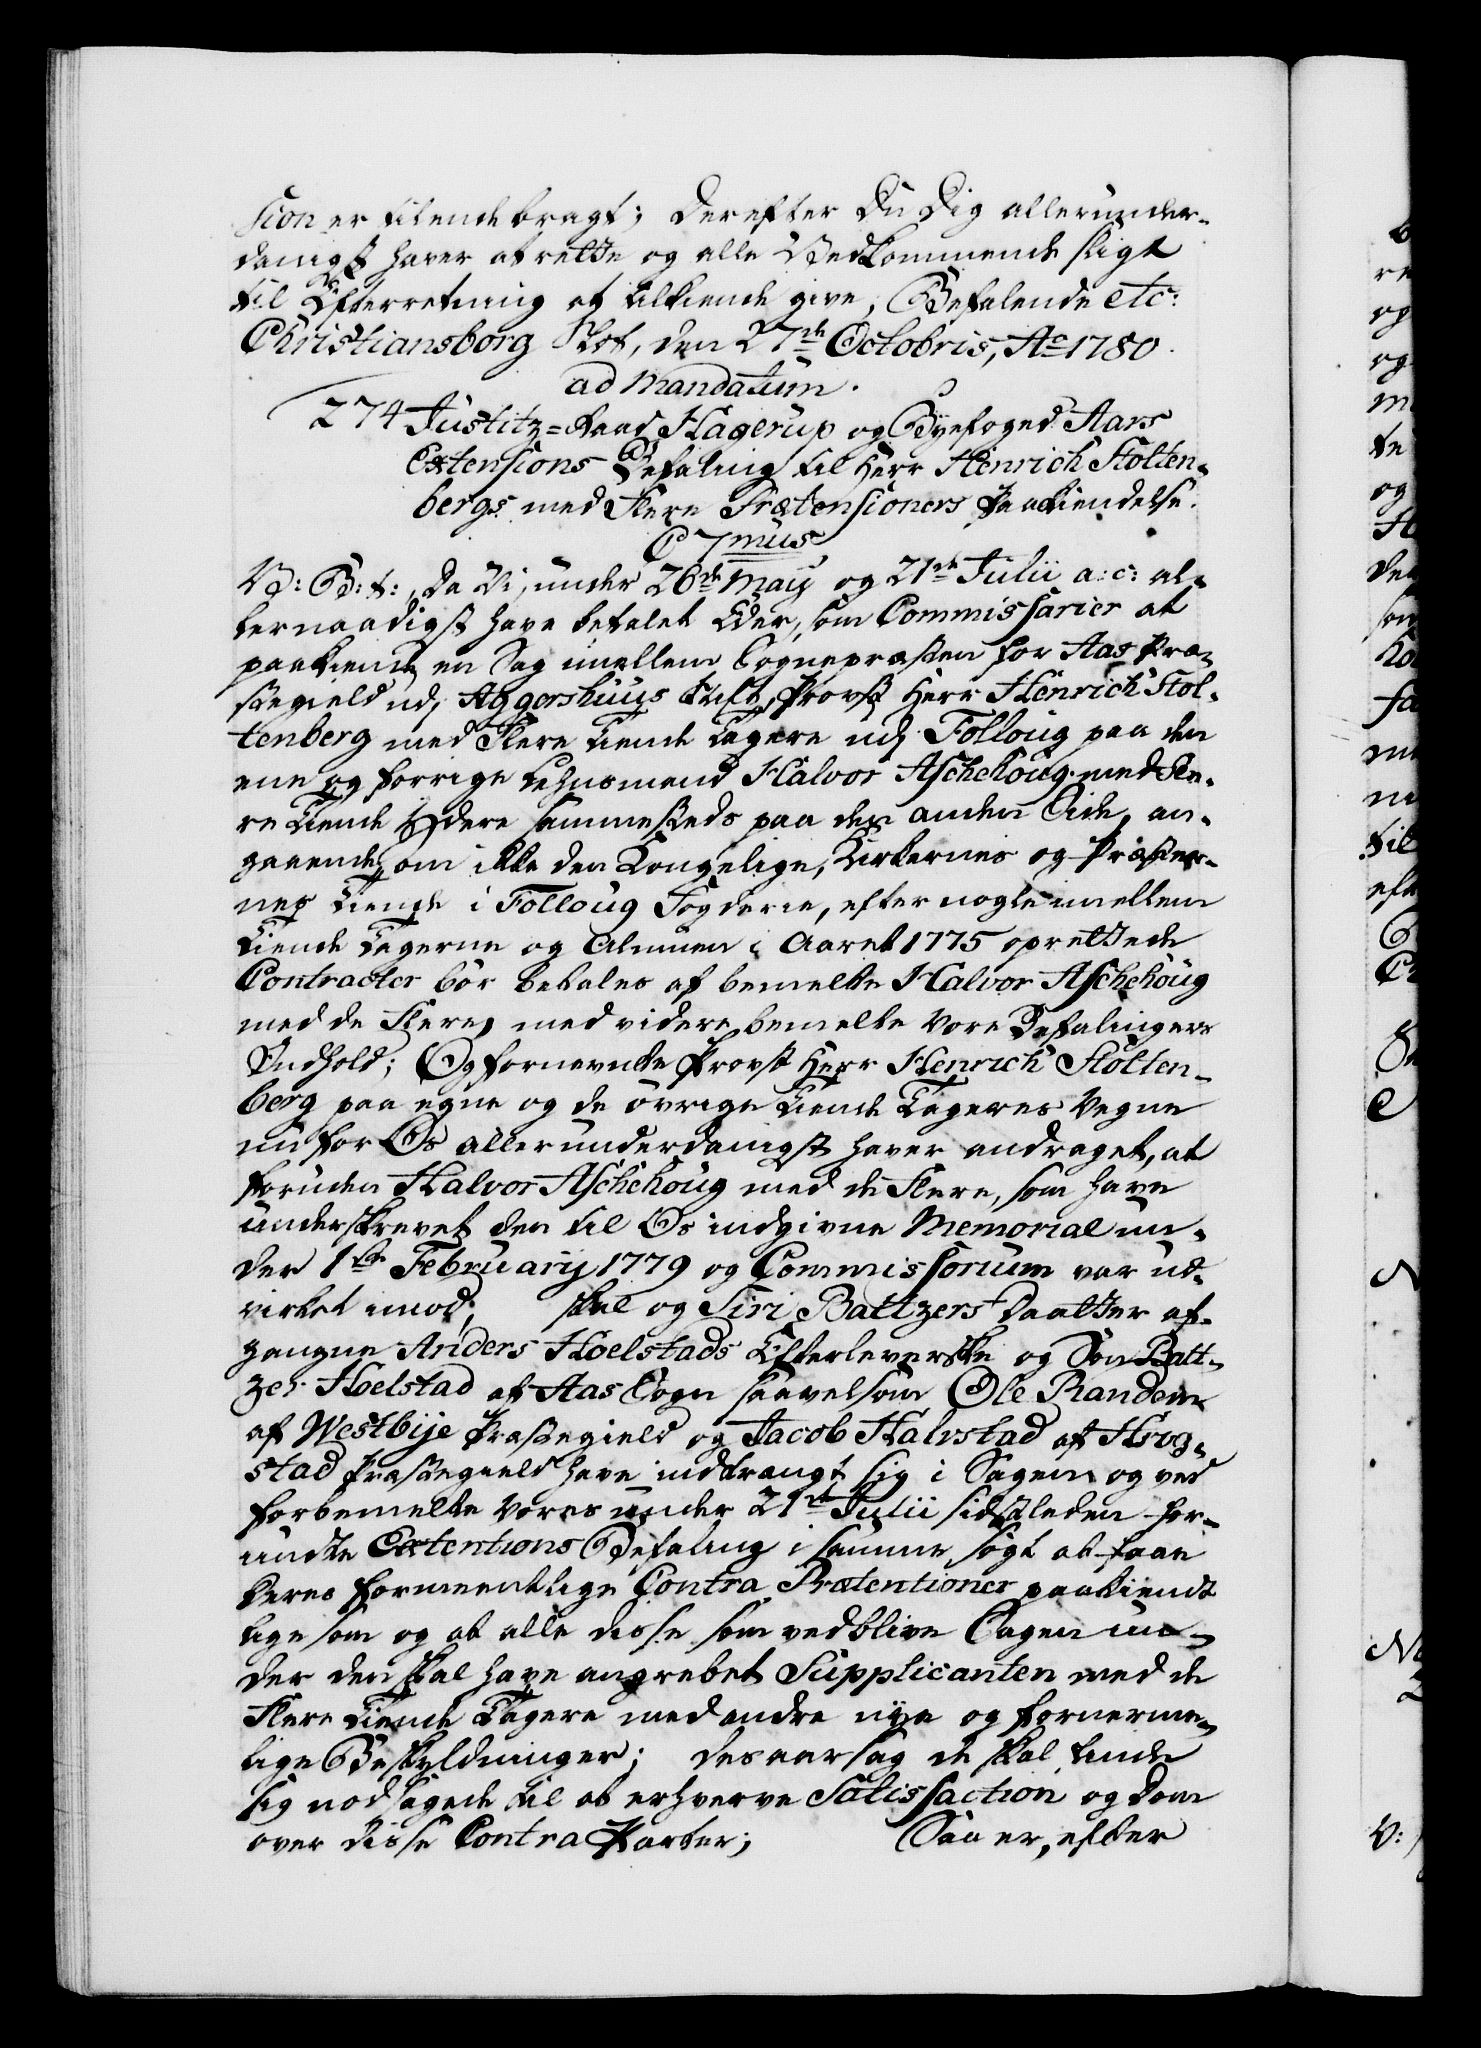 sion er tilendebragt; Derefter Du Dig allerunder-
danigst haver at rette og alle Vedkommende sligt
til Efterretning at tilkiende give, Befalende etc:
Christiansborg Slot, den 27de Octobris, Ao 1780.
ad Mandatum.
274 Justitz-Raad Hagerup og Byefoged Aars
Extensions Befaling til Herr Henrich Stolten-
bergs med Flere Prætensioners Paakiendelse.
C 7mus
V: G: t:, Da Vi, under 26de Maij og 21de Julii a: c: al-
lernaadigst have befalet Eder, som Commissarier at
paakiende en Sag imellem Sognepræsten for Aas Præ-
stegield udj Aggershuus Stift, Provst Herr Henrich Stol-
tenberg med Flere Tiende Tagere udj Folloug paa den
ene og forrige Lehnsmand Halvor Aschehoug med Fle-
re Tiende Ydere sammesteds paa den anden Side, an-
gaaende, om ikke den Kongelige, Kirkernes og Præster-
nes Tiende i Folloug Fogderie, efter nogle imellem
Tiende Tagerne og Almuen i Aaret 1775 oprettede
Contracter bör betales af bemelte Halvor Aschehoug
med de Flere, med videre bemelte Vore Befalingers
Indhold; Og fornevnte Provst Herr Henrich Stolten-
berg paa egne og de övrige Tiende Tageres Vegne
nu for Os allerunderdanigst haver andraget, at
foruden Halvor Aschehoug med de Flere, som have
underskrevet den til Os indgivne Memorial un-
der 1ste February 1779 og Commissorium var ud-
virket imod, skal og Siri Baltzers Daatter af-
gangne Anders Hoelstads Efterleverske og Sön Balt-
zer Hoelstad af Aas Sogn saavelsom Ole Randem
af Westbije Præstegield og Jacob Halvstad af Krog-
stad Præstegield have indtrængt sig i Sagen og ved
forbemelte Vores under 21de Julii sidstleden for-
undte Extentions Befaling i samme, sögt at faae
deres formeentlige Contra Prætentioner paakiendt
ligesom og at alle disse som vedblive Sagen un-
der den skal have angrebet Supplicanten med de
Flere Tiende Tagere med andre nye og fornerme-
lige Beskyldninger; desaarsag de skal finde
sig nödsagede til at erhverve Satisfaction og Dom
over disse Contra Parter; Saa er, efter